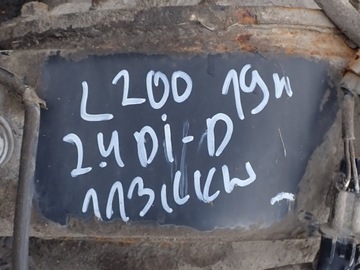 L200 19w
2.4 Di-D
113KKW